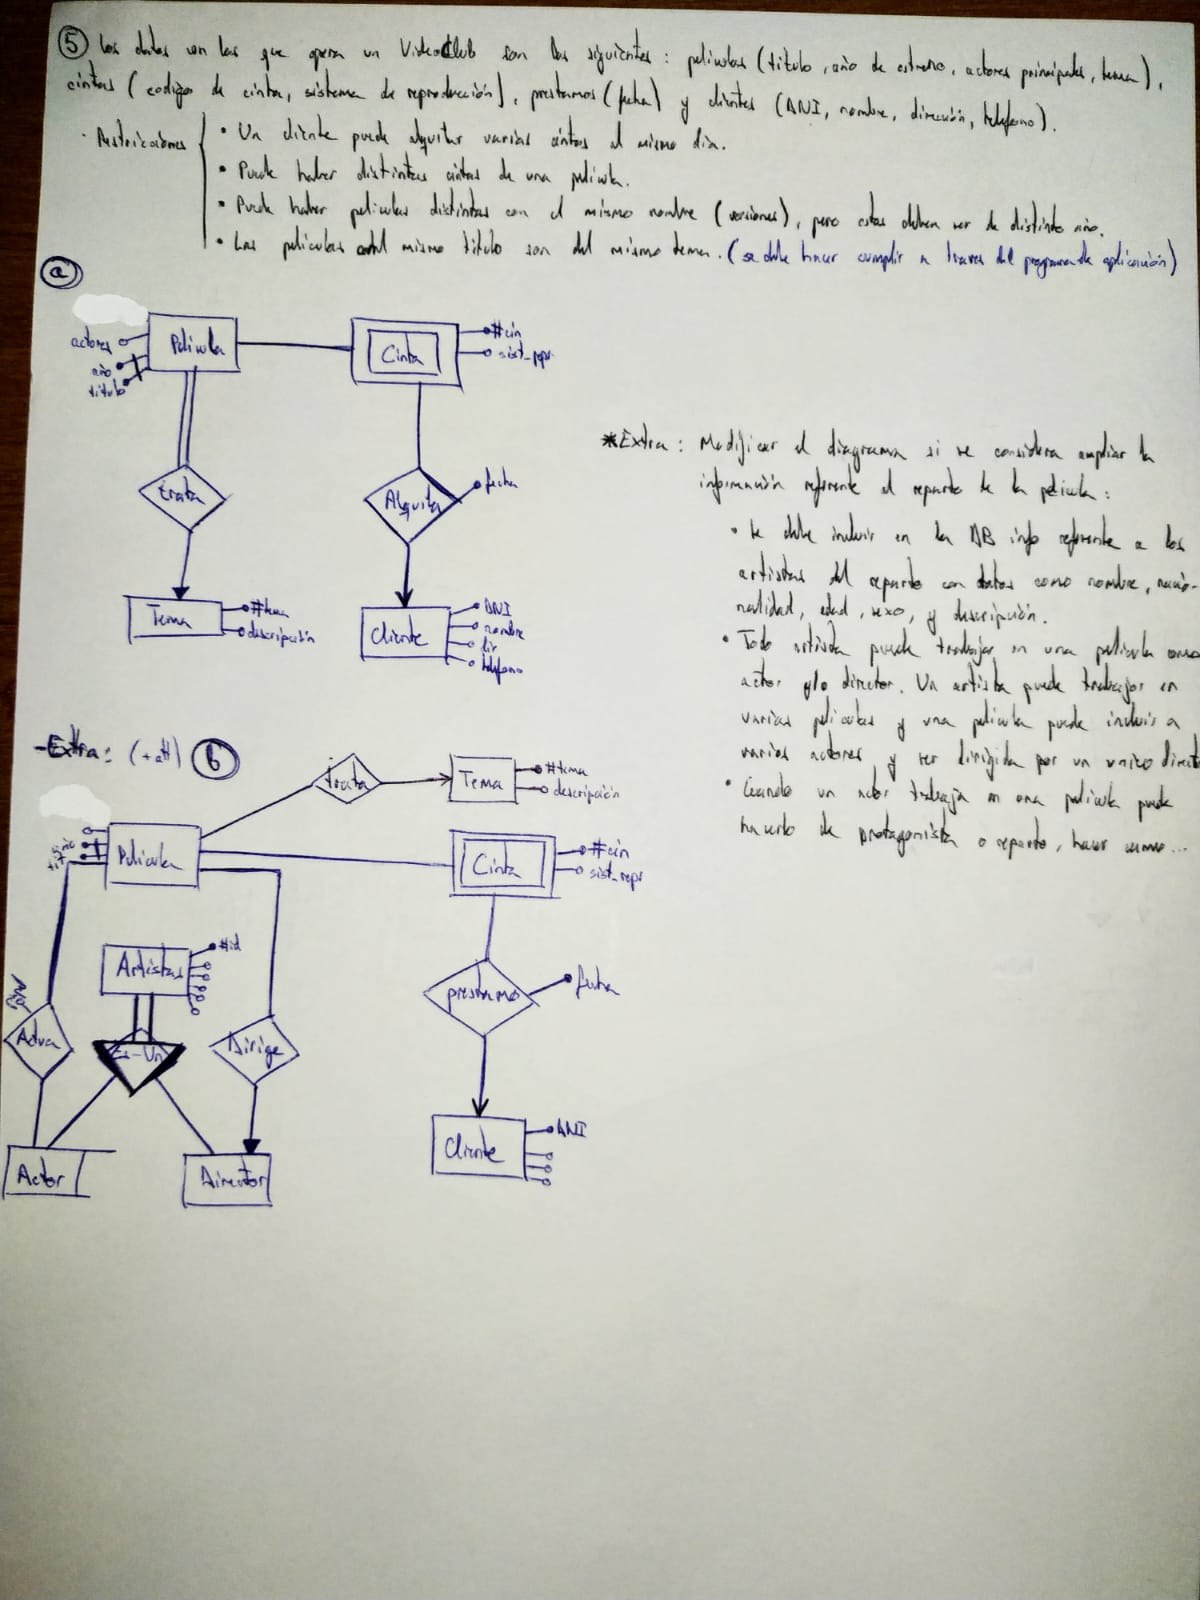 5 Los datos con los que opera un VideoClub son los siguientes: películas (título, año de estreno, actores principales, tema),
cintas (codigo de cinta, sistema de reproducción), prestamos (fecha) y clientes (DNI, nombre, dirección, telefono).
· Restricciones
• Un cliente puede alquilar varias cintas al mismo dia.
• Puede haber distintas cintas de una película.
• Puede haber peliculas distintas con el mismo nombre (versiones), pero estas deben ser de distinto año.
• Las peliculas mismo titulo son del mismo tema. (se debe hacer cumplir a traves del programa de aplicación)
a
actores
año
titulo
Película
Cinta
#cin
sist_repr
trata
Alquila
fecha
Tema
#tema
descripción
Cliente
DNI
nombre
dir
telefono
*Extra: Modificar el diagrama si se considera ampliar la
información referente al reparto de la película:
• se debe incluir en la DB info referente a los
artistas del reparto con datos como nombre, nacio-
nalidad, edad, sexo, y descripción.
• Todo artista puede trabajar en una película como
actor y/o director. Un artista puede trabajar en
varias películas y una película puede incluir a
varios actores y ser dirigida por un unico direct
• Cuando un actor trabaja en una película puede
hacerlo de protagonista o reparto, hacer ...
-Extra: b
trata
Tema
#tema
descripción
año
tit
Película
Cinta
#cin
sist_repr
Artistas
#id
prestamo
fecha
Actua
Es-Un
Dirige
Cliente
DNI
Actor
Director